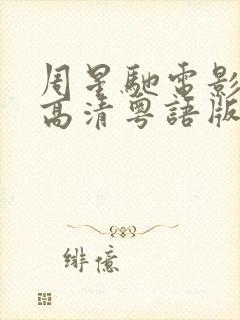 周星馳電影
高清粵語版
緋億